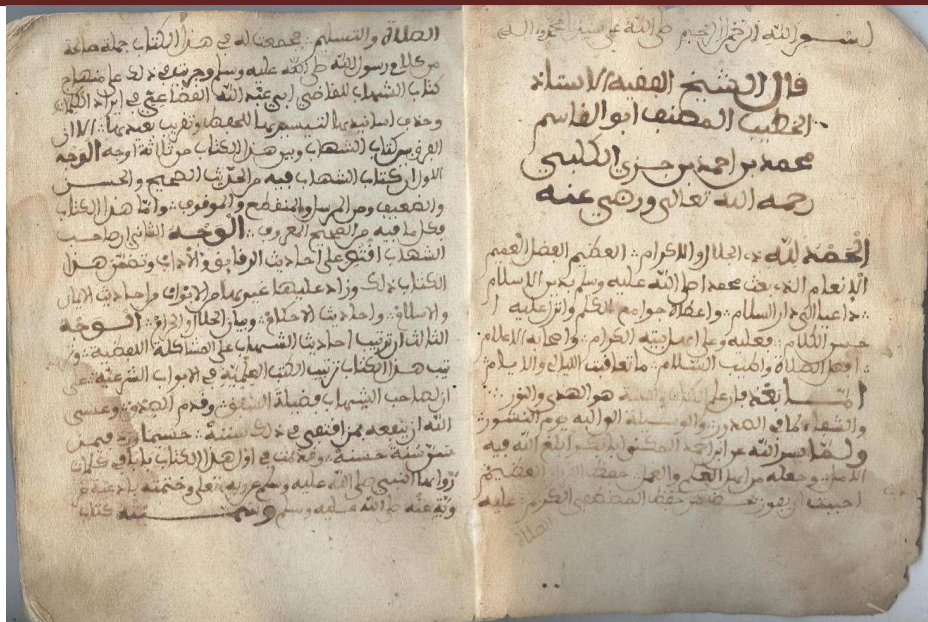 بسم الله الرحمن الرحيم صلى الله على سيدنا محمد وآله
قال الشيخ الفقيه الاستاذ
الخطيب المصنف ابو القاسم
محمد بن احمد بن جزي الكلبي
رحمه الله تعالى ورضي عنه
الحمد لله ذي الجلال والاكرام العظيم الفضل العميم
الانعام الذي بعث محمدا صلى الله عليه وسلم بدين الاسلام
داعيا الى دار السلام واعطاه جوامع الكلم وانزل عليه ا
حسن الكلام فعليه وعلى اهل بيته الكرام واصحابه الاعلام
افضل الصلاة واطيب السلام ما تعاقبت الليالي والايام
امـا بعد فان علم الكتاب والسنة هو الهدى والنور
والشفاء لما في الصدور والوسيلة الواقية يوم النشور
ولما يسر الله على ابني احمد المكنى بابي بكر ابلغ الله فيه
الامل وجعله من اهل العلم والعمل حفظ القرآن العظيم
احببت ان يفوز بحفظ المصطفى الكريم عليه
الصلاة
الصلاة والتسليم فجمعت له في هذا الكتاب جملة صالحة
من كلام رسول الله صلى الله عليه وسلم وجريت في ذلك على منهاج
كتاب الشهاب للقاضي ابي عبد الله القضاعي في ايراد الكلمات
وحذف اسانيدها لتيسيرها للحفظ وتقريب بعيدها الا ان
الفرق بين كتاب الشهاب وبين هذا الكتاب من ثلاثة اوجه الوجه
الاول ان كتاب الشهاب فيه من الحديث الصحيح والحسن
والضعيف ومن المرسل والمنقطع والموقوف واما هذا الكتاب
فكل ما فيه من الصحيح المعروف الوجه الثاني ان صاحب
الشهاب اقتصر على احاديث الرقائق والآداب وتضمن هذا
الكتاب ذلك وزاد عليها غيرها من الابواب من احاديث الايمان
والاسلام واحاديث الاحكام وبيان الحلال والحرام الوجه
الثالث ان ترتيب احاديث الشهاب على المشاكلة اللفظية وتر
تيب هذا الكتاب ترتيب الكتب العلمية في الابواب الشرعية على
ان لصاحب الشهاب فضيلة السبق وقدم الصدق وعسى
الله ان ينفعه بمن اقتفى في ذلك سننه حسبما ورد فيمن
سن سنة حسنة وقدمت في اول هذا الكتاب بابا في كلمات
رواها النبي صلى الله عليه وسلم عن ربه تعلى وختمته بادعية مر
وية عنه صلى الله عليه وسلم وسميته كتاب